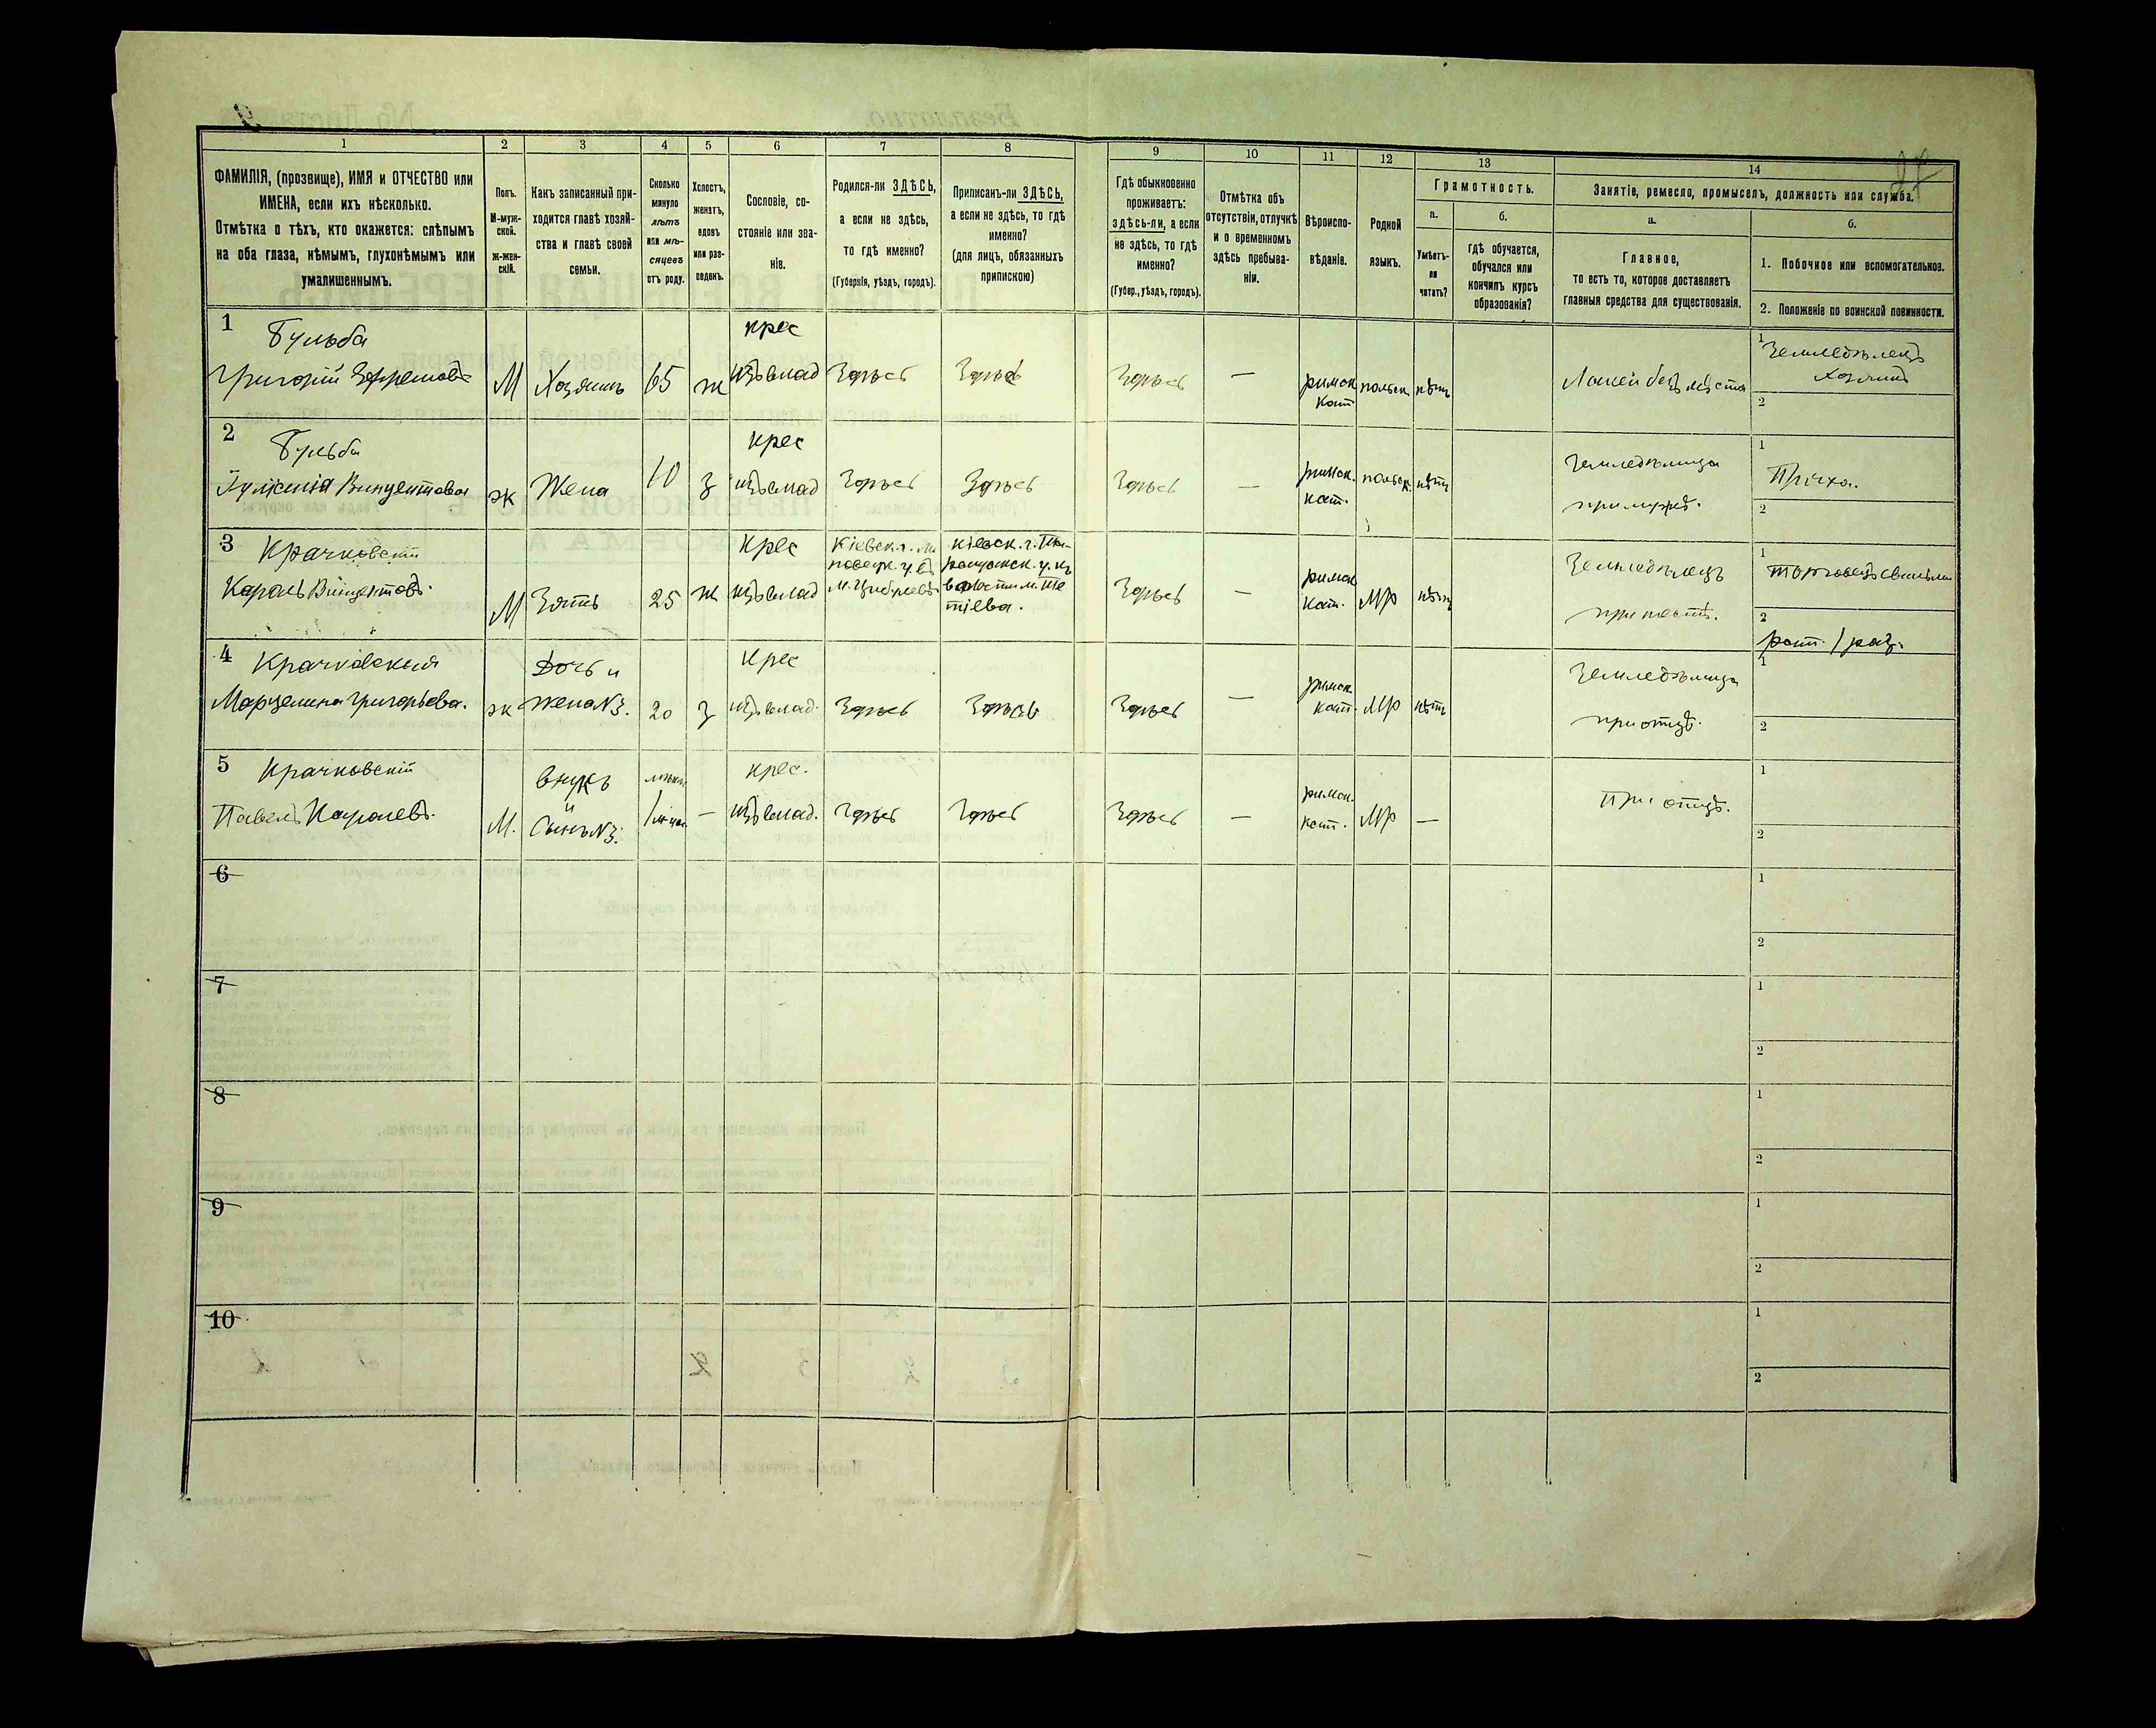 1 2 3 4 5 6 7 8 9 10 11 12 13 14
ФАМИЛІЯ, (прозвище), ИМЯ и ОТЧЕСТВО или
ИМЕНА, если ихъ нѣсколько.
Отмѣтка о тѣхъ, кто окажется: слѣпымъ
на оба глаза, нѣмымъ, глухонѣмымъ или
умалишеннымъ.
Полъ.
М-муж-
ской.
Ж-жен-
скій.
Какъ записанный при-
ходится главѣ хозяй-
ства и главѣ своей
семьи.
Сколько
минуло
лѣтъ
или мѣ-
сяцевъ
отъ роду.
Холостъ,
женатъ,
вдовъ
или раз-
веденъ.
Сословіе, со-
стояніе или зва-
ніе.
Родился-ли ЗДѢСЬ,
а если не здѣсь,
то гдѣ именно?
(Губернія, уѣздъ, городъ).
Приписанъ-ли ЗДѢСЬ,
а если не здѣсь, то гдѣ
именно?
(для лицъ, обязанныхъ
припискою)
Гдѣ обыкновенно
проживаетъ:
здѣсь-ли, а если
не здѣсь, то гдѣ
именно?
(Губер., уѣздъ, городъ).
Отмѣтка объ
отсутствіи, отлучкѣ
и о временномъ
здѣсь пребыва-
ніи.
Вѣроиспо-
вѣданіе.
Родной
языкъ.
Грамотность.
а. б.
Умѣетъ-
ли
читать?
Гдѣ обучается,
обучался или
кончилъ курсъ
образованія?
Занятіе, ремесло, промыселъ, должность или служба.
а. б.
Главное,
то есть то, которое доставляетъ
главныя средства для существованія.
1. Побочное или вспомогательное.
2. Положеніе по воинской повинности.
1 Бульба крес 1 Земледѣлецъ
Григорій М Хозяинъ 65 ж изъ влад Здѣсь Здѣсь Здѣсь — римск. польск. нѣтъ хозяинъ
кат. 2
2 Бульба крес 1
Винцентова ж Жена з изъ влад Здѣсь Здѣсь Здѣсь — римск. польск. нѣтъ Земледѣлица Пряха.
кат. при мужѣ. 2
3 Крачковскій крес Кіевск. г. Кіевск. г. Земледѣлецъ 1
Кароль Винцентовъ. М Зять 25 ж изъ влад Здѣсь — римск. мр нѣтъ
кат. при тестѣ. 2
4 Крачковская Дочь и крес Земледѣлица 1
Марцелина Григорьева. ж жена №3. 20 з изъ влад. Здѣсь Здѣсь Здѣсь — римск. мр нѣтъ
кат. при отцѣ. 2
5 Крачковскій внукъ крес. 1
и
Павелъ Каролевъ. М. сынъ №3. — изъ влад. Здѣсь Здѣсь Здѣсь — римск. мр — При отцѣ.
кат. 2
6 1
2
7 1
2
8 1
2
9 1
2
10 1
2